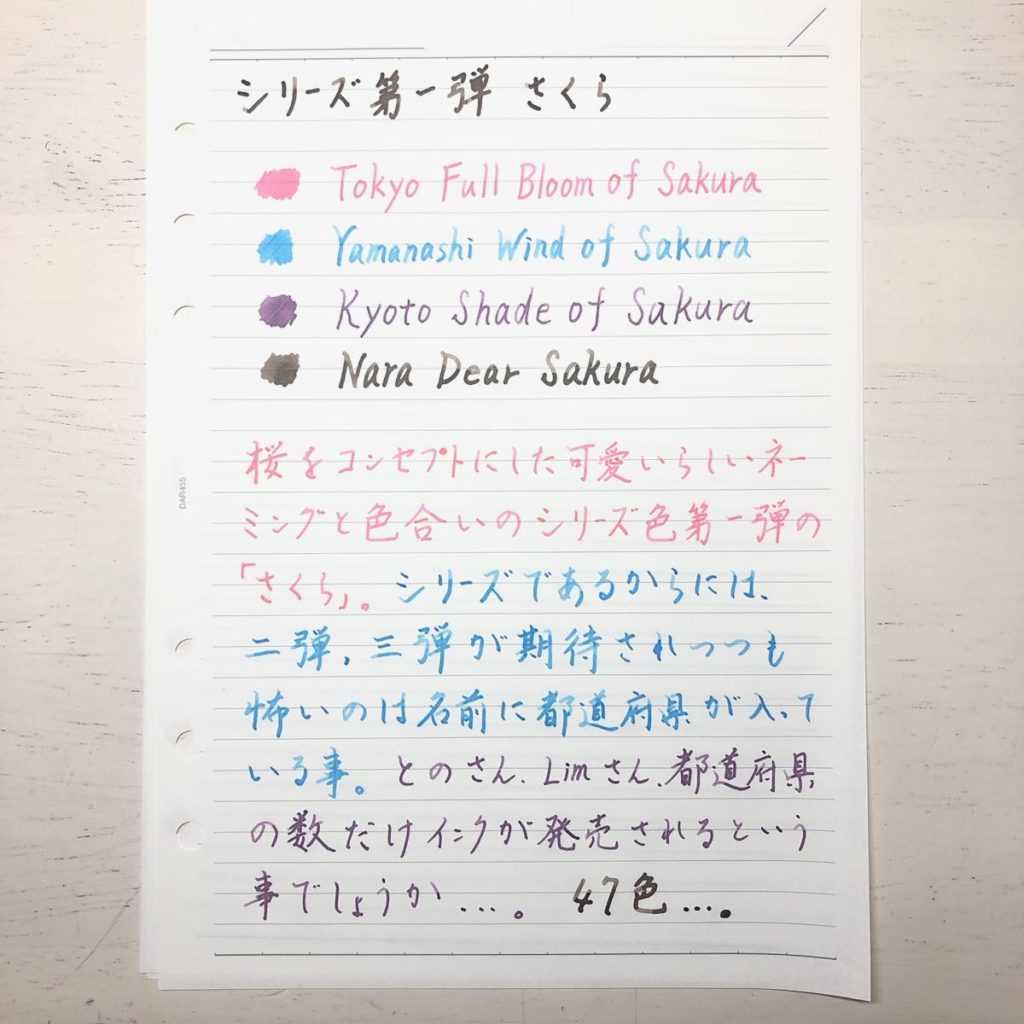 シリーズ第一弾 さくら
Tokyo Full Bloom of Sakura
Yamanashi Wind of Sakura
Kyoto Shade of Sakura
Nara Dear Sakura
桜をコンセプトにした可愛いらしいネー
ミングと色合いのシリーズ色第一弾の
「さくら」。シリーズであるからには、
二弾,三弾が期待されつつも
怖いのは名前に都道府県が入って
いる事。とのさん、Limさん、都道府県
の数だけインクが発売されるという
事でしょうか…。 47色…。
DAR455